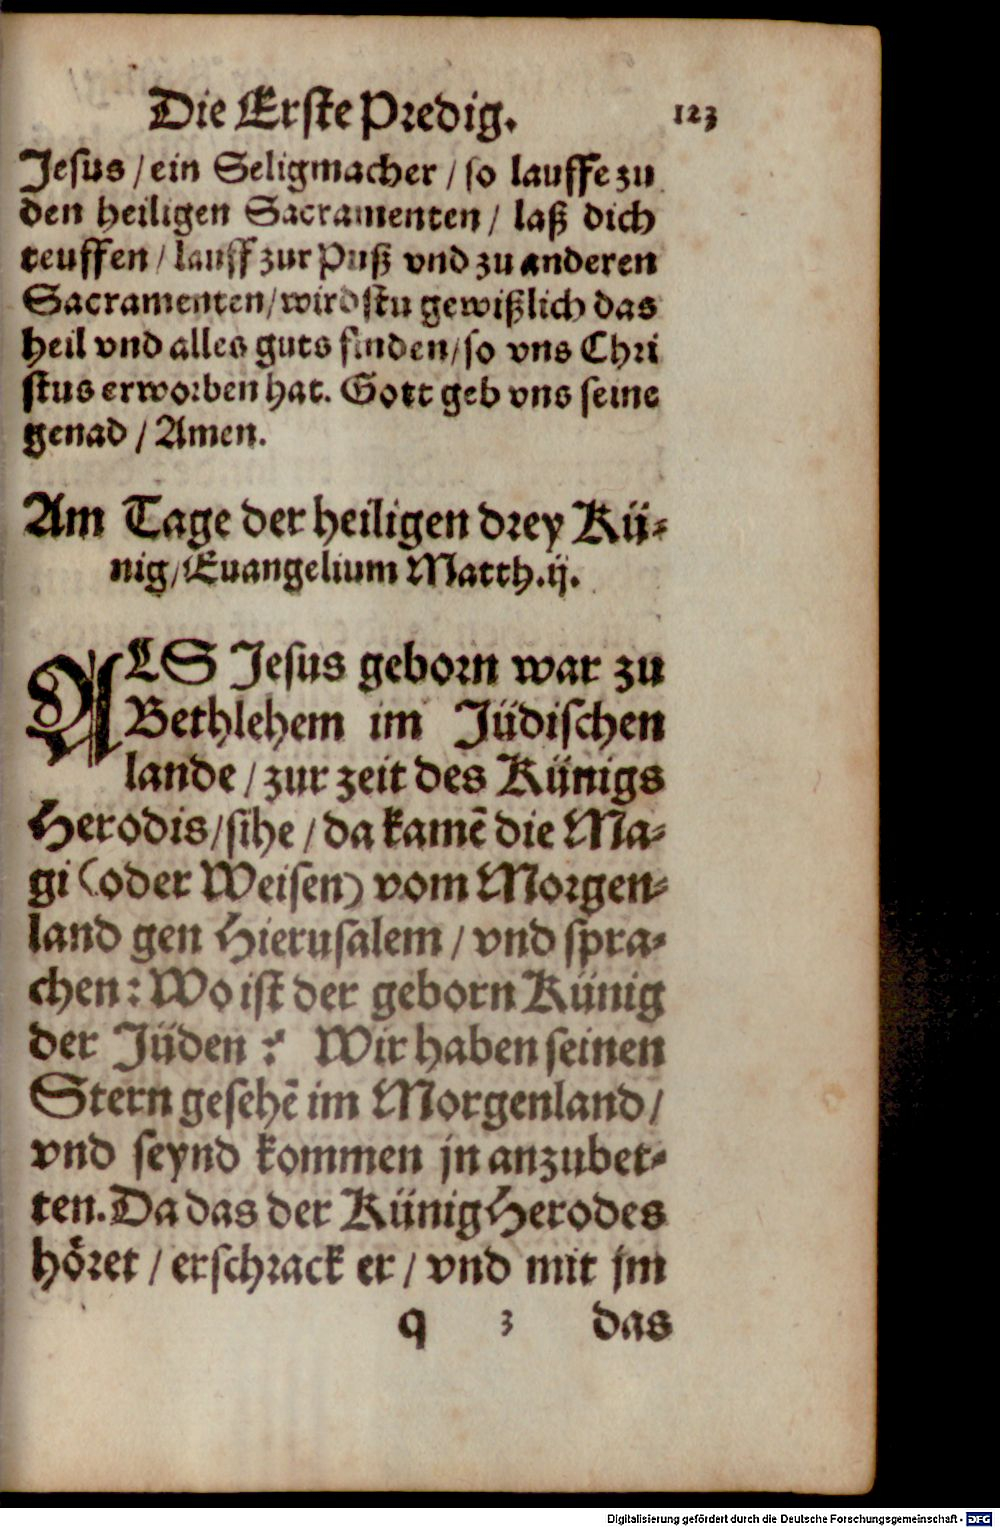 Die Erste Predig. 123
Jesus / ein Seligmacher / so lauffe zu
den heiligen Sacramenten / laß dich
teuffen / lauff zur Puß vnd zu anderen
Sacramenten / wirdstu gewißlich das
heil vnd alles guts finden / so vns Chri
stus erworben hat. Gott geb vns seine
genad / Amen.
Am Tage der heiligen drey Kü-
nig / Euangelium Matth. ij.
ALS Jesus geborn war zu
Bethlehem im Jüdischen
lande / zur zeit des Künigs
Herodis / sihe / da kamẽ die Ma-
gi (oder Weisen) vom Morgen-
land gen Hierusalem / vnd spra-
chen: Wo ist der geborn Künig
der Jüden? Wir haben seinen
Stern gesehẽ im Morgenland /
vnd seynd kommen jn anzubet-
ten. Da das der Künig Herodes
höret / erschrack er / vnd mit jm
q 3 das
Digitalisierung gefördert durch die Deutsche Forschungsgemeinschaft - DFG